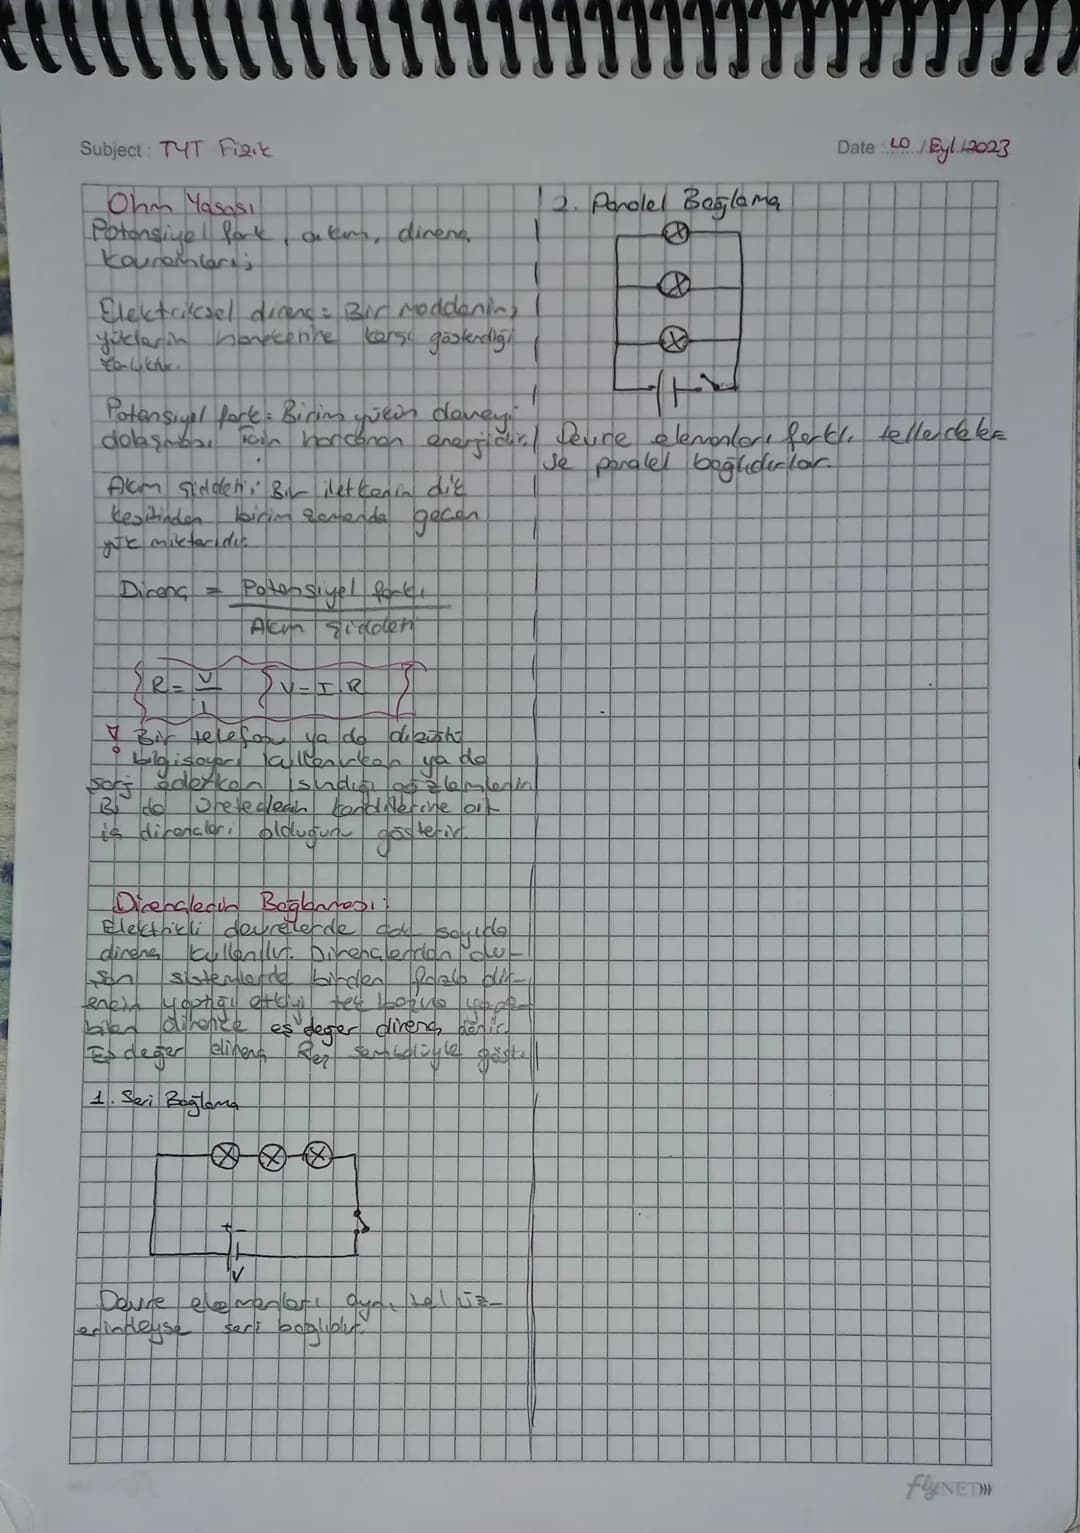 Subject: TYT Fizik
Date: 10 / Eyl / 2023
Ohm Yasası
Potansiyel fark, akım, direnç
kavramları;
Elektriksel direnç = Bir maddenin,
yüklerin hareketine karşı gösterdiği
zorluktur.
Potansiyel fark = Birim yükün devreyi
dolaşması için harcanan enerjidir.
Akım şiddeti: Bir iletkenin dik
kesitinden birim zamanda geçen
yük miktarıdır.
Direnç = Potansiyel farkı
Akım şiddeti
R = V
I
V = I.R
! Bir telefon ya da dizüstü
bilgisayarı kullanırken ya da
şarj ederken ısındığı gözlemlenir.
Bu da üreteçlerin kendilerine ait
iç dirençleri olduğun gösterir.
Dirençlerin Bağlanması:
Elektrikli devrelerde çok sayıda
direnç kullanılır. Dirençlerden olu-
şan sistemlerde birden fazla dir-
encin yaptığı etkiyi tek başına yapa-
bilen dirence eş değer direnç denir.
Eş değer direnç Reş sembolüyle göst.
1. Seri Bağlama
+ -
V
Devre elemanları aynı tel üz-
erindeyse seri bağlıdır.
2. Paralel Bağlama
Devre elemanları farklı tellerdeler-
se paralel bağlıdırlar.
flyNET